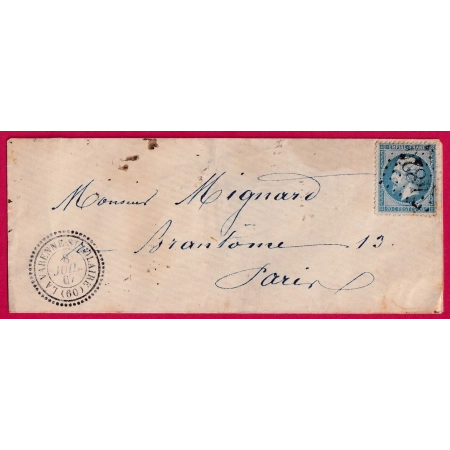 EMPIRE FRANC
Monsieur Mignard
Brantôme 13.
Paris
LA VARENNE-ST-HILAIRE (60)
8
JUIL.
67